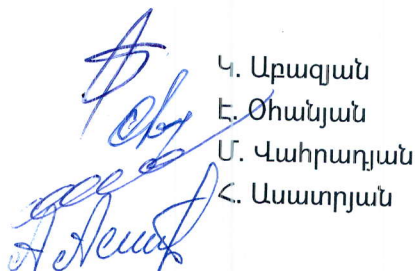 Կ. Աբազյան
Է. Օհանյան
Մ. Վահրադյան
Հ. Ասատրյան